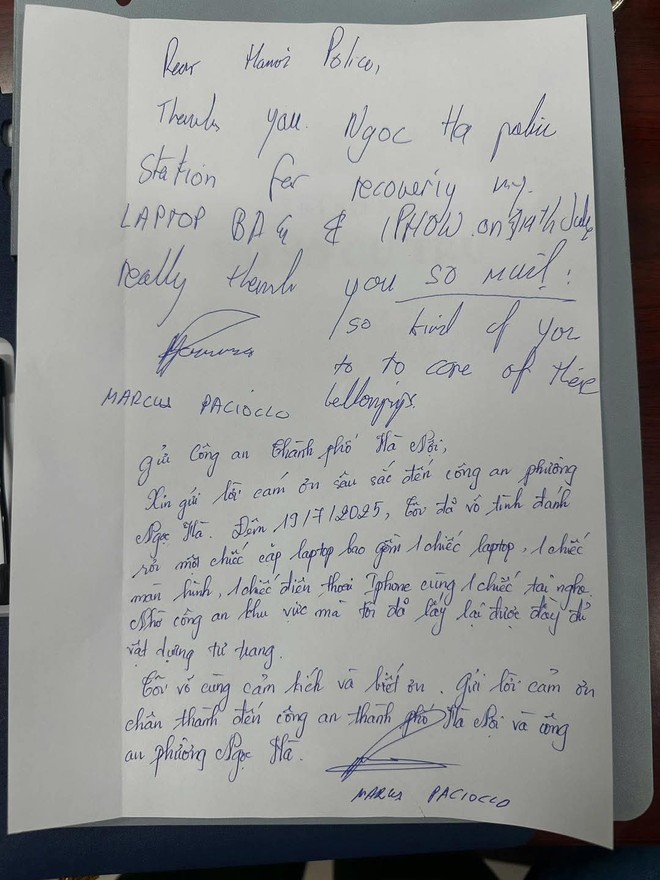 Dear Hanoi Police,
Thanks you. Ngoc Ha police
Station for recovery my
LAPTOP BAG & IPHOW on 19th July
really thank you so much!
so kind of you
to to care of these
bellongings.
MARCUS PACIOCCO
Gửi Công an thành phố Hà Nội,
Xin gửi lời cảm ơn sâu sắc đến công an phường
Ngọc Hà. Đêm 19/7/2025, tôi đã vô tình đánh
rơi một chiếc cặp laptop bao gồm 1 chiếc laptop, 1 chiếc
màn hình, 1 chiếc điện thoại Iphone cùng 1 chiếc tai nghe.
Nhờ công an khu vực mà tôi đã lấy lại được đầy đủ
vật dụng tư trang.
Tôi vô cùng cảm kích và biết ơn. Gửi lời cảm ơn
chân thành đến công an thành phố Hà Nội và công
an phường Ngọc Hà.
MARCUS PACIOCCO